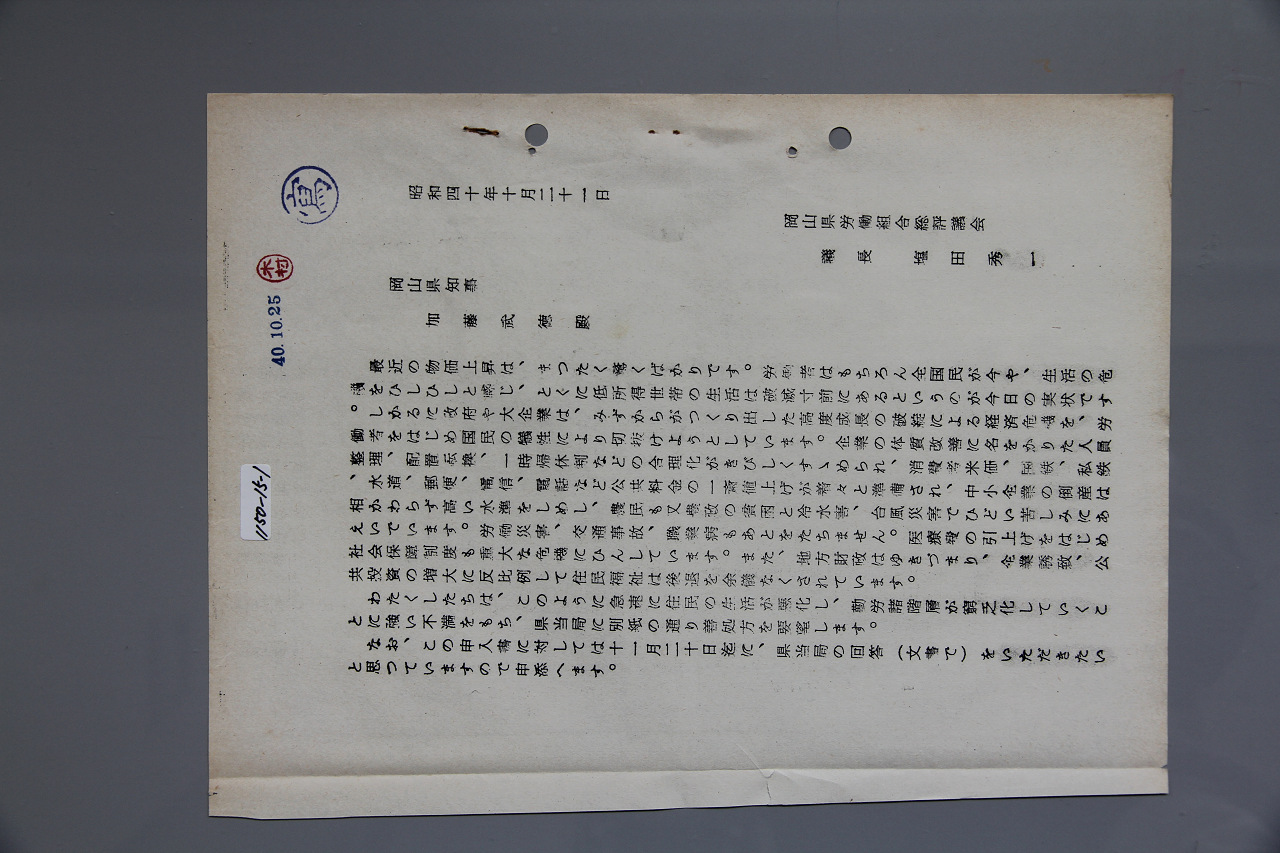 写
木村
40.10.25
1150-15-1
昭和四十年十月二十一日
岡山県労働組合総評議会
議長 塩田秀一
岡山県知事
加藤武徳殿
最近の物価上昇は、まつたく驚くばかりです。労働者はもちろん全国民が今や、生活の危
機をひしひしと感じ、とくに低所得世帯の生活は破滅寸前にあるというのが今日の実状です
。しかるに政府や大企業は、みずからがつくり出した高度成長の破綻による経済危機を、労
働者をはじめ国民の犠牲により切抜けようとしています。企業の体質改善に名をかりた人員
整理、配置転換、一時帰休制などの合理化がきびしくすゝめられ、消費者米価、国鉄、私鉄
、水道、郵便、電信、電話など公共料金の一斉値上げが着々と準備され、中小企業の倒産は
相かわらず高い水準をしめし、農民も又農政の貧困と冷水害、台風災害でひどい苦しみにあ
えいでいます。労働災害、交通事故、職業病もあとをたちません。医療費の引上げをはじめ
社会保障制度も重大な危機にひんしています。また、地方財政はゆきづまり、企業誘致、公
共投資の増大に反比例して住民福祉は後退を余儀なくされています。
わたくしたちは、このように急速に住民の生活が悪化し、勤労諸階層が窮乏化していくこ
とに強い不満をもち、県当局に別紙の通り善処方を要望します。
なお、この申入書に対しては十一月二十日迄に、県当局の回答（文書で）をいただきたい
と思つていますので申添へます。